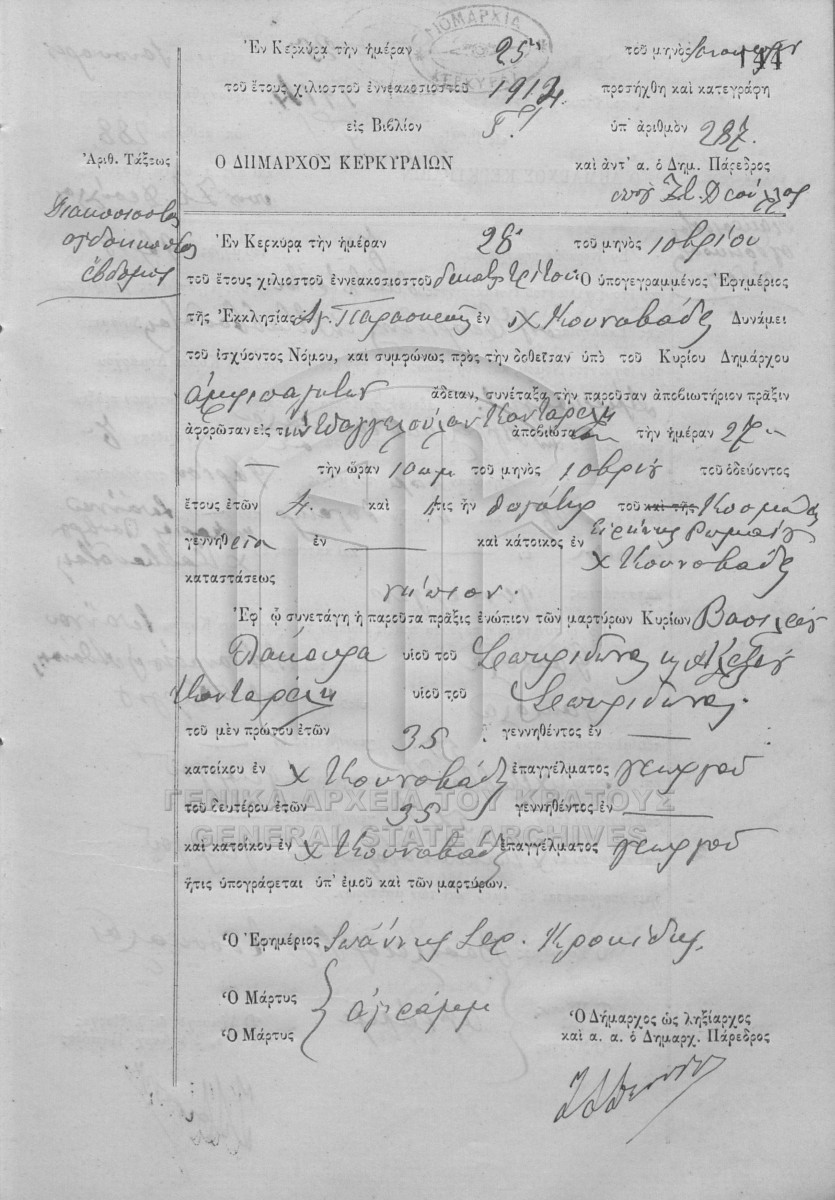 144
ΝΟΜΑΡΧΙΑ
ΚΕΡΚΥΡΑΣ
Ἐν Κερκύρᾳ τὴν ἡμέραν 25 τοῦ μηνὸς
τοῦ ἔτους χιλιοστοῦ ἐννεακοσιοστοῦ 1914 προσήχθη καὶ κατεγράφη
εἰς Βιβλίον Γ' ὑπ' ἀριθμὸν 287.
Ἀριθ. Τάξεως
Ο ΔΗΜΑΡΧΟΣ ΚΕΡΚΥΡΑΙΩΝ καὶ ἀντ' α. ὁ Δημ. Πάρεδρος
Διακοσιοστὸς
ὀγδοηκοστὸς
ἕβδομος
Ἐν Κερκύρᾳ τὴν ἡμέραν 28 τοῦ μηνὸς 10βρίου
τοῦ ἔτους χιλιοστοῦ ἐννεακοσιοστοῦ δεκάτου τρίτου Ὁ ὑπογεγραμμένος Ἐφημέριος
τῆς Ἐκκλησίας Ἁγ. Παρασκευῆς ἐν χ Κουναβάδες Δυνάμει
τοῦ ἰσχύοντος Νόμου, καὶ συμφώνως πρὸς τὴν δοθεῖσαν ὑπὸ τοῦ Κυρίου Δημάρχου
ἄδειαν, συνέταξα τὴν παροῦσαν ἀποβιωτήριον πρᾶξιν
ἀφορῶσαν εἰς τὴν Εὐαγγελούλαν Κονταρίνη ἀποβιώσασαν τὴν ἡμέραν 27ην
— τὴν ὥραν 10 πμ τοῦ μηνὸς 10βρίου τοῦ ὁδεύοντος
ἔτους ἐτῶν 4. καὶ ἥτις ἦν θυγάτηρ τοῦ καὶ τῆς Κοσμᾶ
Εἰρήνης
γεννηθεῖσα ἐν — καὶ κάτοικος ἐν χ Κουναβάδες
καταστάσεως νήπιον.
Ἐφ' ᾧ συνετάγη ἡ παροῦσα πρᾶξις ἐνώπιον τῶν μαρτύρων Κυρίων Βασιλείου
υἱοῦ τοῦ Σπυρίδωνος κ Ἀλεξίου
Κονταρίνη υἱοῦ τοῦ Σπυρίδωνος.
τοῦ μὲν πρώτου ἐτῶν 35 γεννηθέντος ἐν —
κατοίκου ἐν χ Κουναβάδες ἐπαγγέλματος γεωργοῦ
τοῦ δευτέρου ἐτῶν 35 γεννηθέντος ἐν —
καὶ κατοίκου ἐν χ Κουναβάδες ἐπαγγέλματος γεωργοῦ
ἥτις ὑπογράφεται ὑπ' ἐμοῦ καὶ τῶν μαρτύρων.
Ὁ Ἐφημέριος Ἰωάννης Ιερ. Κροκίδης
Ὁ Μάρτυς
Ὁ Μάρτυς
ἀγράμμ
Ὁ Δήμαρχος ὡς ληξίαρχος
καὶ α. α. ὁ Δημαρχ. Πάρεδρος
ΓΕΝΙΚΑ ΑΡΧΕΙΑ ΤΟΥ ΚΡΑΤΟΥΣ
GENERAL STATE ARCHIVES